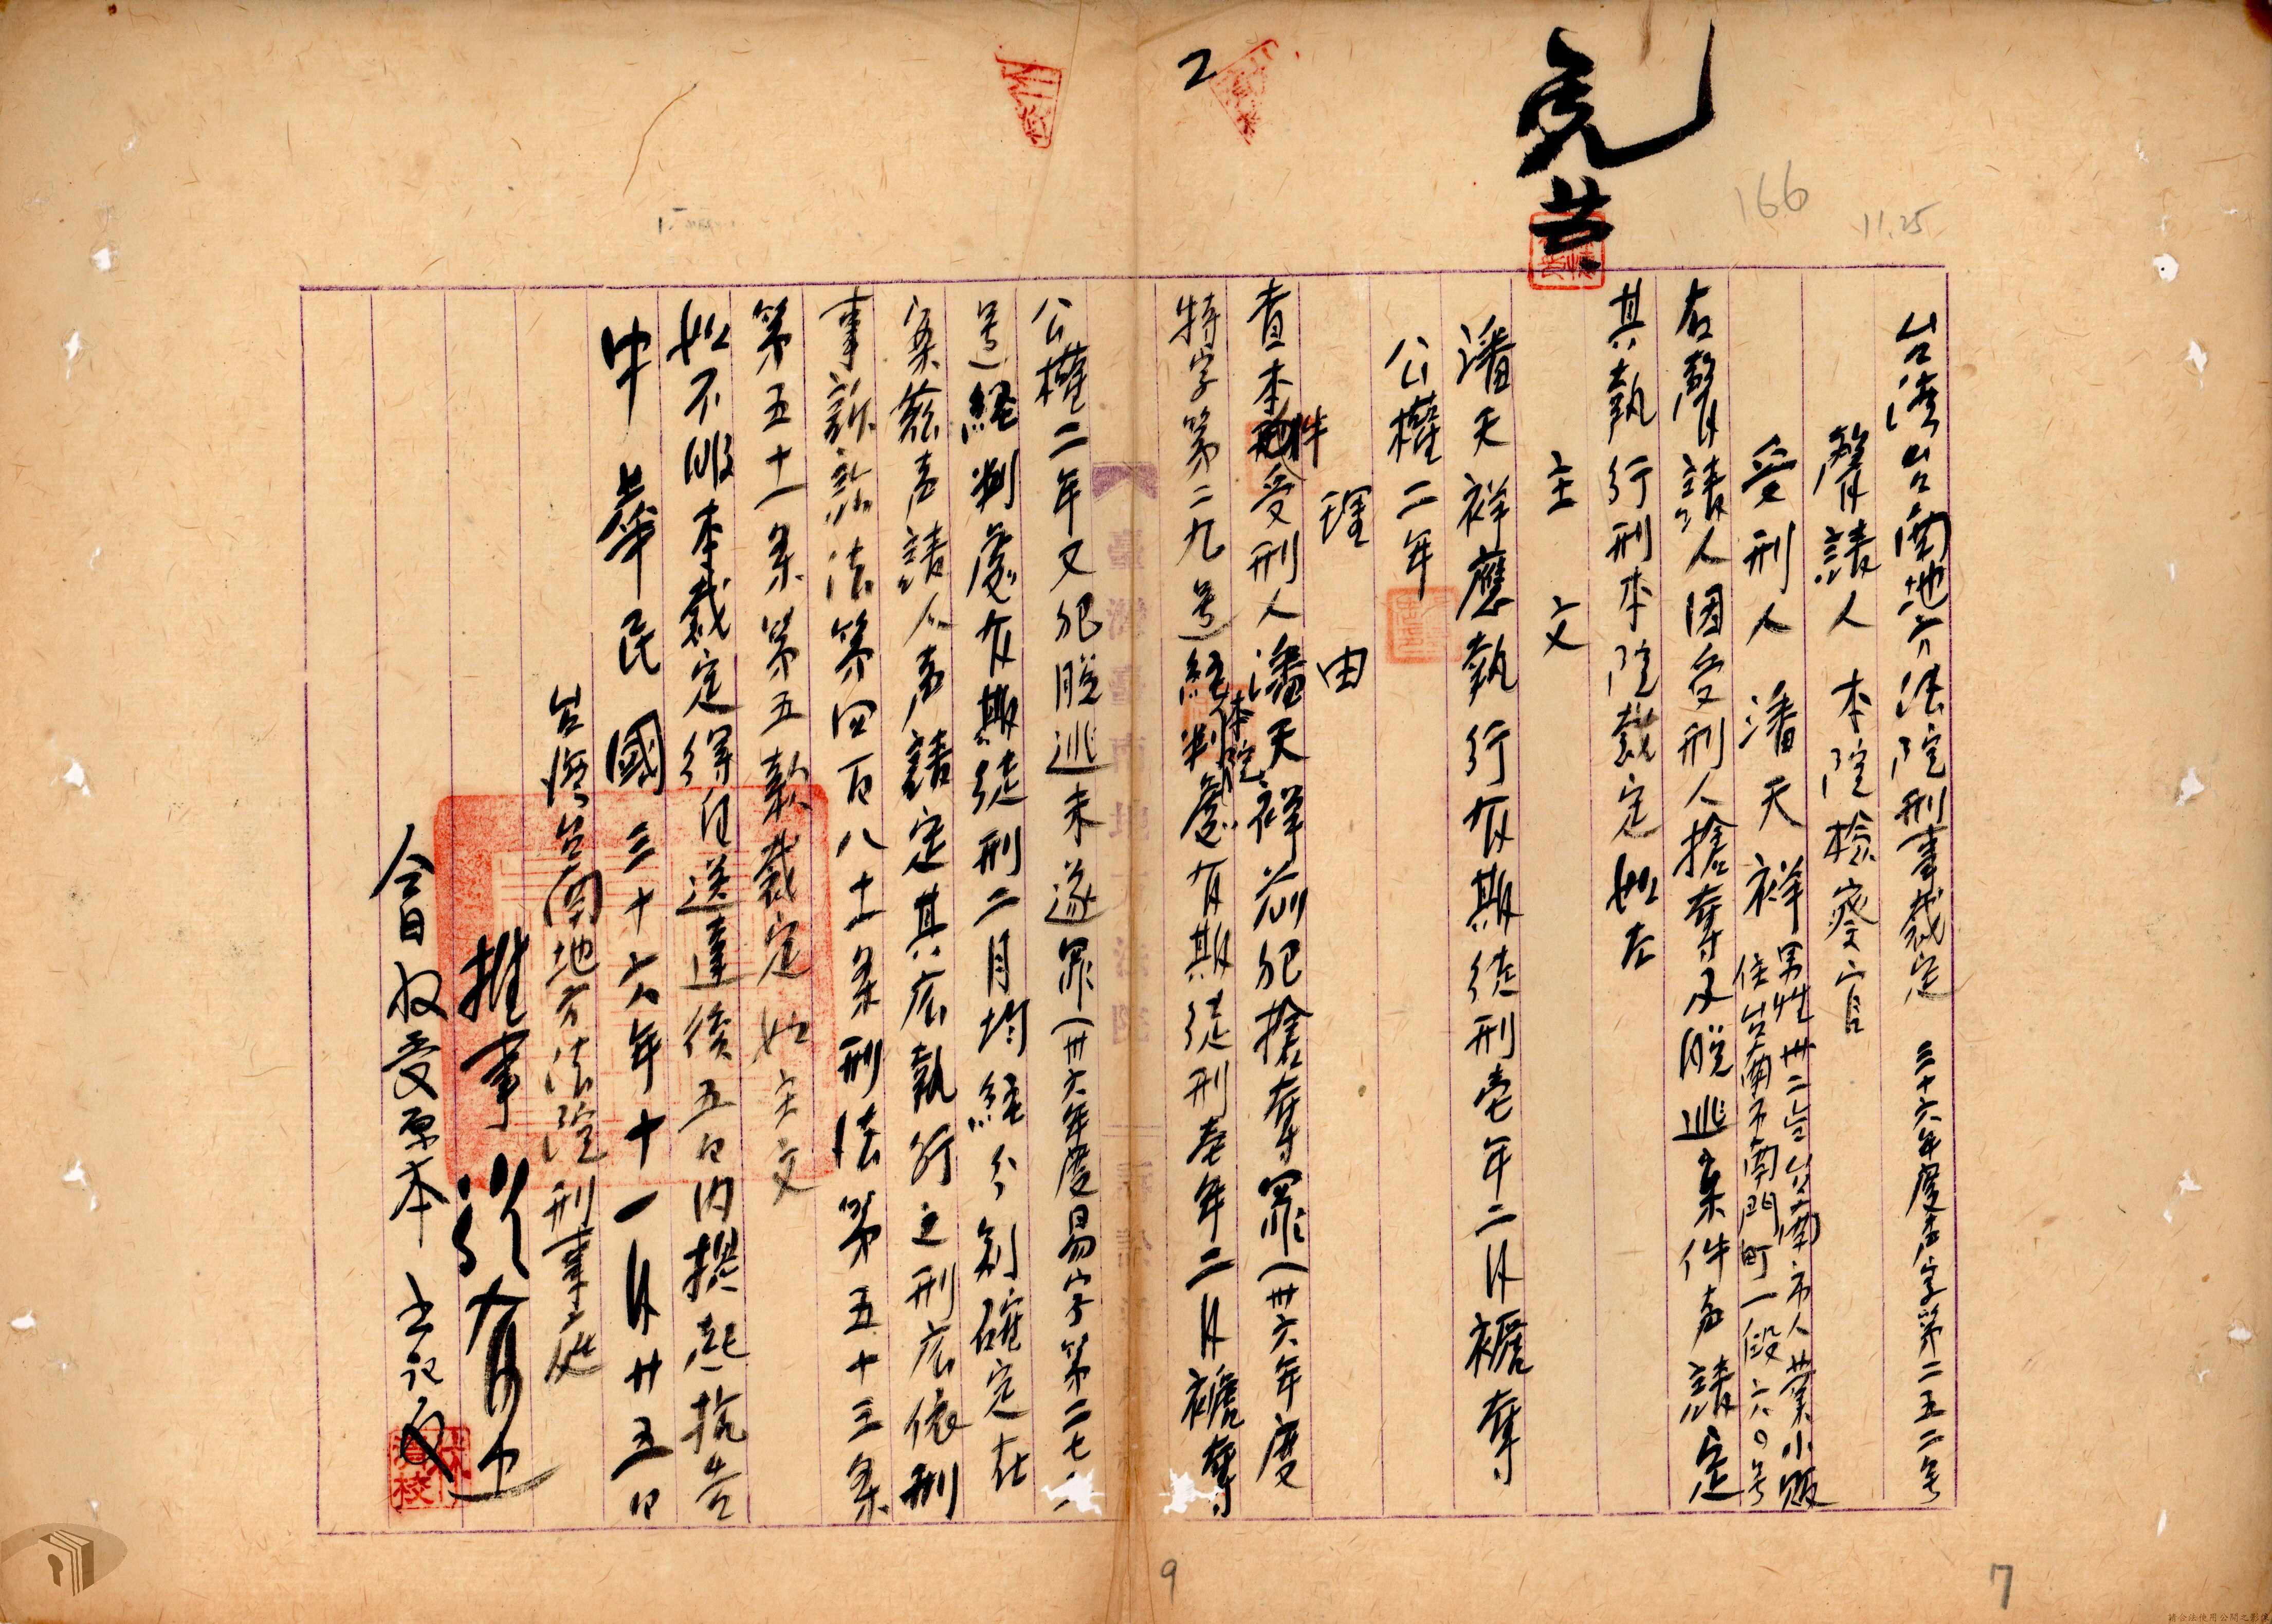 台湾台南地方法院刑事裁定　三十六年度声字第二五二号
聲請人　本院檢察官
受刑人　潘天祥　男性卅二歲台南市人業小販
住台南市南門町一段六〇号
右聲請人因受刑人搶奪及脫逃案件声請定
其執行刑本院裁定如左
主文
潘天祥應執行有期徒刑壱年二月褫奪
公權二年
理由
查本件受刑人潘天祥前犯搶奪罪（卅六年度
特字第二九号）経本院判處有期徒刑壱年二月褫奪
公權二年又犯脫逃未遂罪（卅六年度易字第二七
号）経判處有期徒刑二月均経分別確定在
案茲声請人声請定其應執行之刑應依刑
事訴訟法第四百八十一条刑法第五十三条
第五十一条第五款裁定如主文
如不服本裁定得自送達後五日内撰起抗告
中華民國三十六年十一月廿五日
台湾台南地方法院刑事庭
推事
今日收受原本　書記官
2
166
11.25
9
7